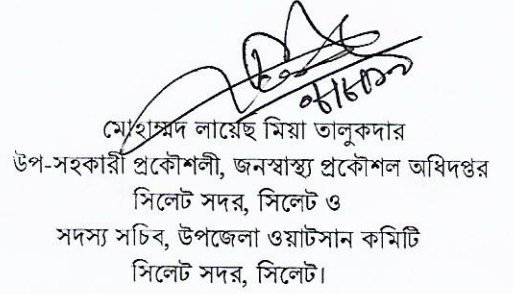 মোহাম্মদ লায়েছ মিয়া তালুকদার
উপ-সহকারী প্রকৌশলী, জনস্বাস্থ্য প্রকৌশল অধিদপ্তর
সিলেট সদর, সিলেট ও
সদস্য সচিব, উপজেলা ওয়াটসান কমিটি
সিলেট সদর, সিলেট।